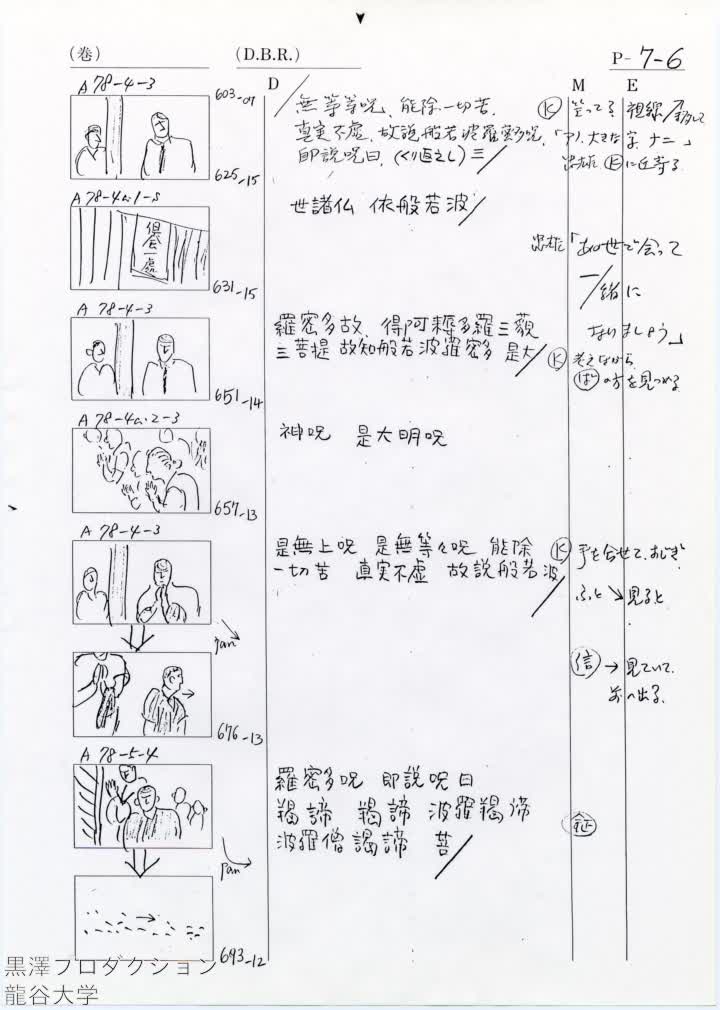 （巻）
（D.B.R.）
P- 7-6
D
M
E
A 78-4-3
603-07
625-15
無等等呪、能除一切苦
真実不虚、故説般若波羅蜜多呪、
即説呪曰、(くり返えし) 三
K
祖線
「アノ、大きな字 ナニ」
K に近寄る
A 78-4a・1-5
倶会一處
631-15
世諸仏 依般若波
「あの世で会って
一緒に
なりましょう」
A 78-4-3
651-14
羅蜜多故、得阿耨多羅三藐
三菩提 故知般若波羅蜜多 是大
K 考えながら
ば の方を見つめる
A 78-4a・2-3
657-13
神呪 是大明呪
A 78-4-3
是無上呪 是無等々呪 能除
一切苦 真実不虚 故説般若波
K 手を合せて、おじぎ
ふと ↘ 見ると
pan
信 → 見ていて、
前へ出る、
676-13
A 78-5-4
羅蜜多呪 即説呪曰
羯諦 羯諦 波羅羯諦
波羅僧羯諦 菩
鉦
pan
693-12
黒澤プロダクション
龍谷大学